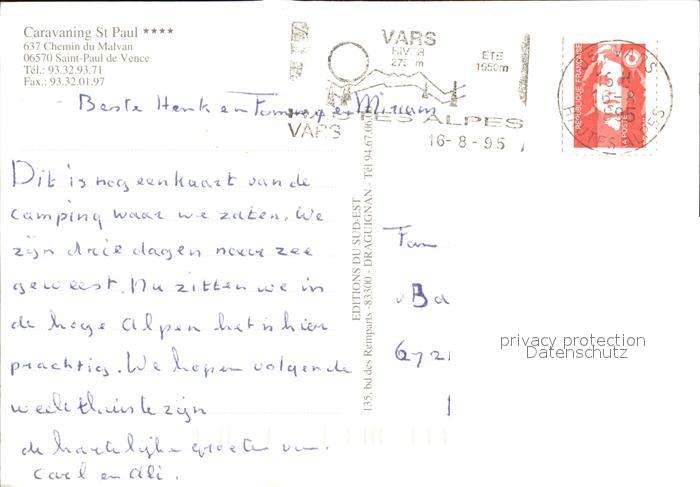 Caravaning St Paul ****
637 Chemin du Malvan
06570 Saint-Paul de Vence
Tél.: 93.32.93.71
Fax.: 93.32.01.97
VARS
HIVER
ETE
1650m
HAUTES ALPES
VARS
16-8-95
VARS
HAUTES ALPES
RÉPUBLIQUE FRANÇAISE
LA POSTE
Beste Henk en en Miriam
Dit is nog een kaart van de
camping waar we zaten. We
zijn drie dagen naar zee
geweest. Nu zitten we in
de hoge Alpen het is hier
prachtig. We hopen volgende
week thuis te zijn
de hartelijke groeten van
Carl en Ali.
EDITIONS DU SUD-EST
135, bd des Remparts - 83300 - DRAGUIGNAN - Tél 94.67.06
Fam
v Bd
672
privacy protection
Datenschutz